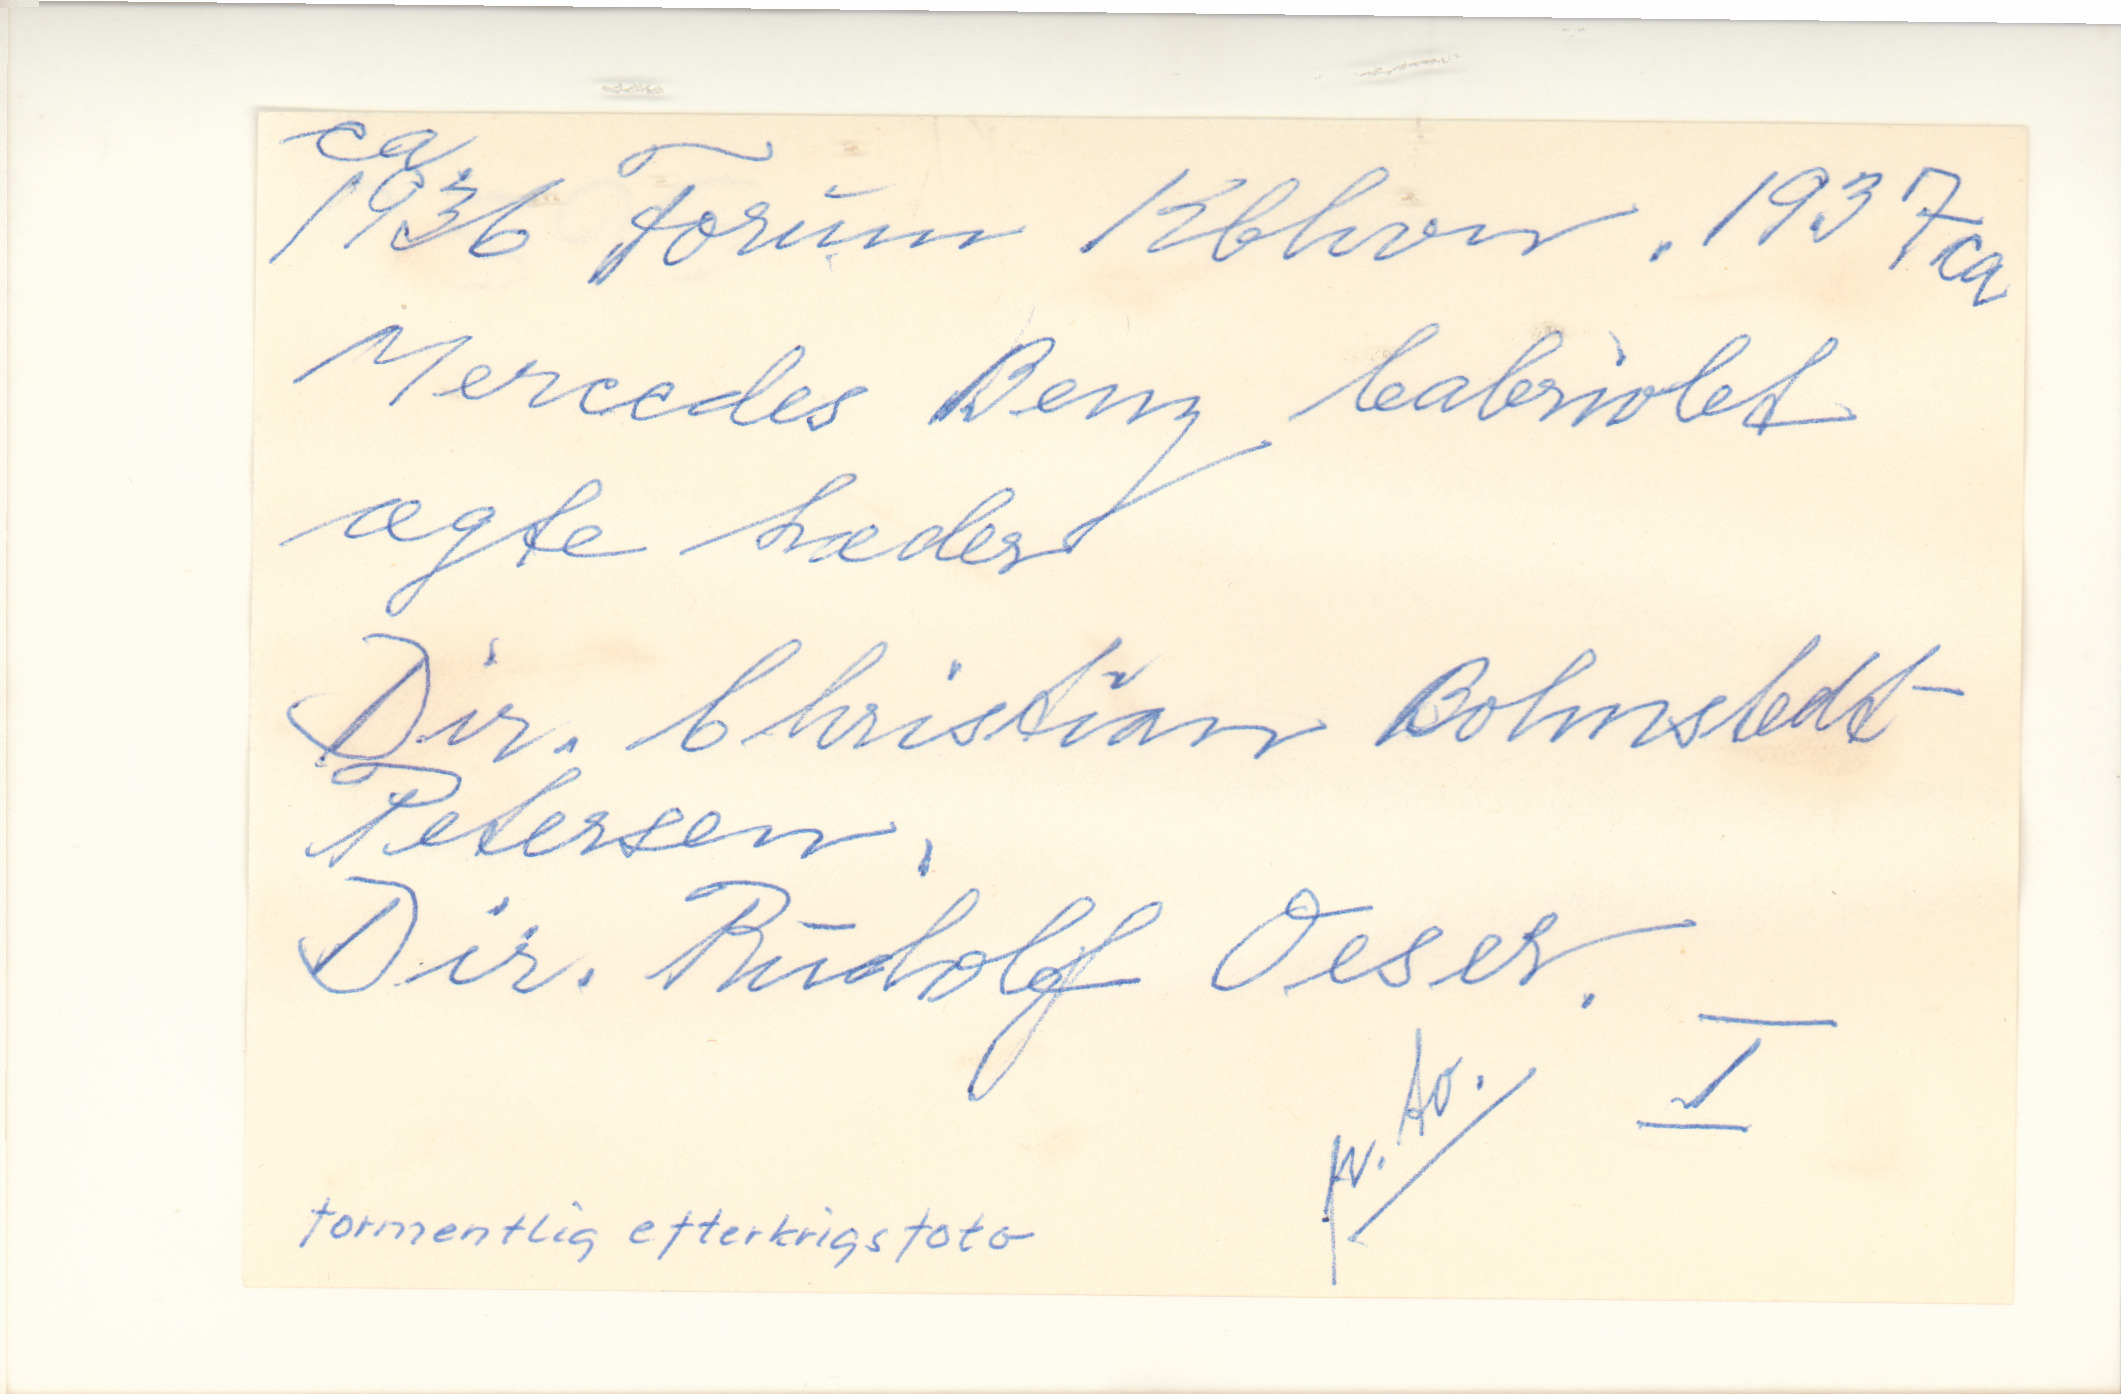 ca.
1936 Forum Kbhvn. 1937 ca
Mercedes Benz Cabriolet
ægte Læder
Dir. Christian Bohnstedt-
Petersen.
Dir. Rudolf Oeser.
I
formentlig efterkrigsfoto